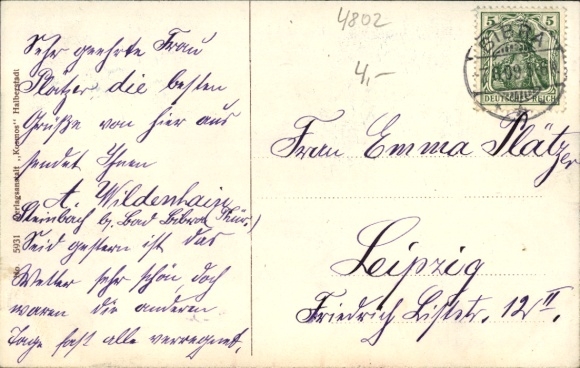 4802
4,-
Sehr geehrte Frau
Plätzer die besten
Grüße von hier aus
sendet Ihnen
A. Wildenhain
Steinbach b. Bad Bibra Thür.)
Seid gestern ist das
Wetter sehr schön, doch
waren die anderen
Tage fast alle verregnet.
Frau Emma Plätzer
Leipzig
Friedrich Liststr. 12 II.
5
5
BIBRA
DEUTSCHES REICH
No. 5931 Verlagsanstalt „Kosmos" Halberstadt